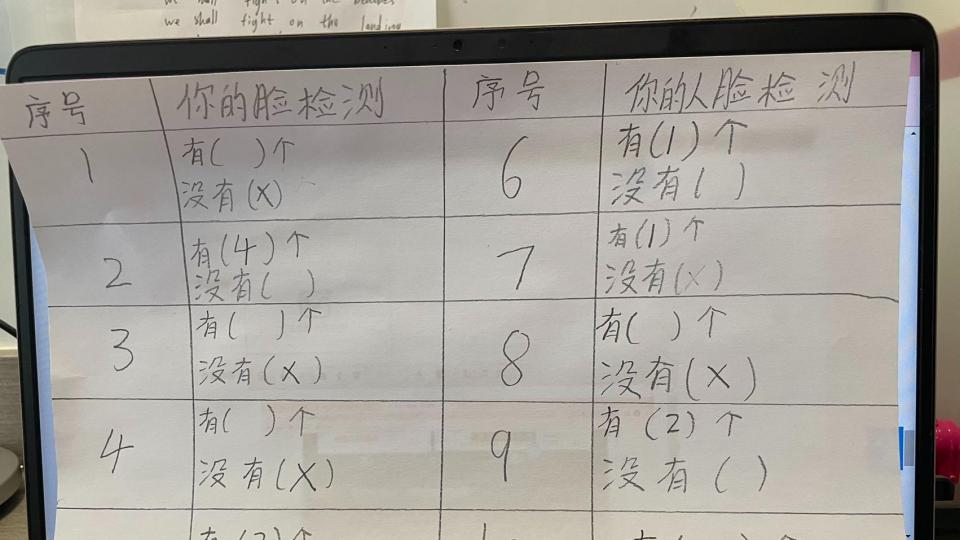 we shall fight on the landing
序号 你的脸检测 序号 你的人脸检测
1 有( )个 6 有(1)个
没有(X) 没有( )
2 有(4)个 7 有(1)个
没有( ) 没有(X)
3 有( )个 8 有( )个
没有(X) 没有(X)
4 有( )个 9 有(2)个
没有(X) 没有( )